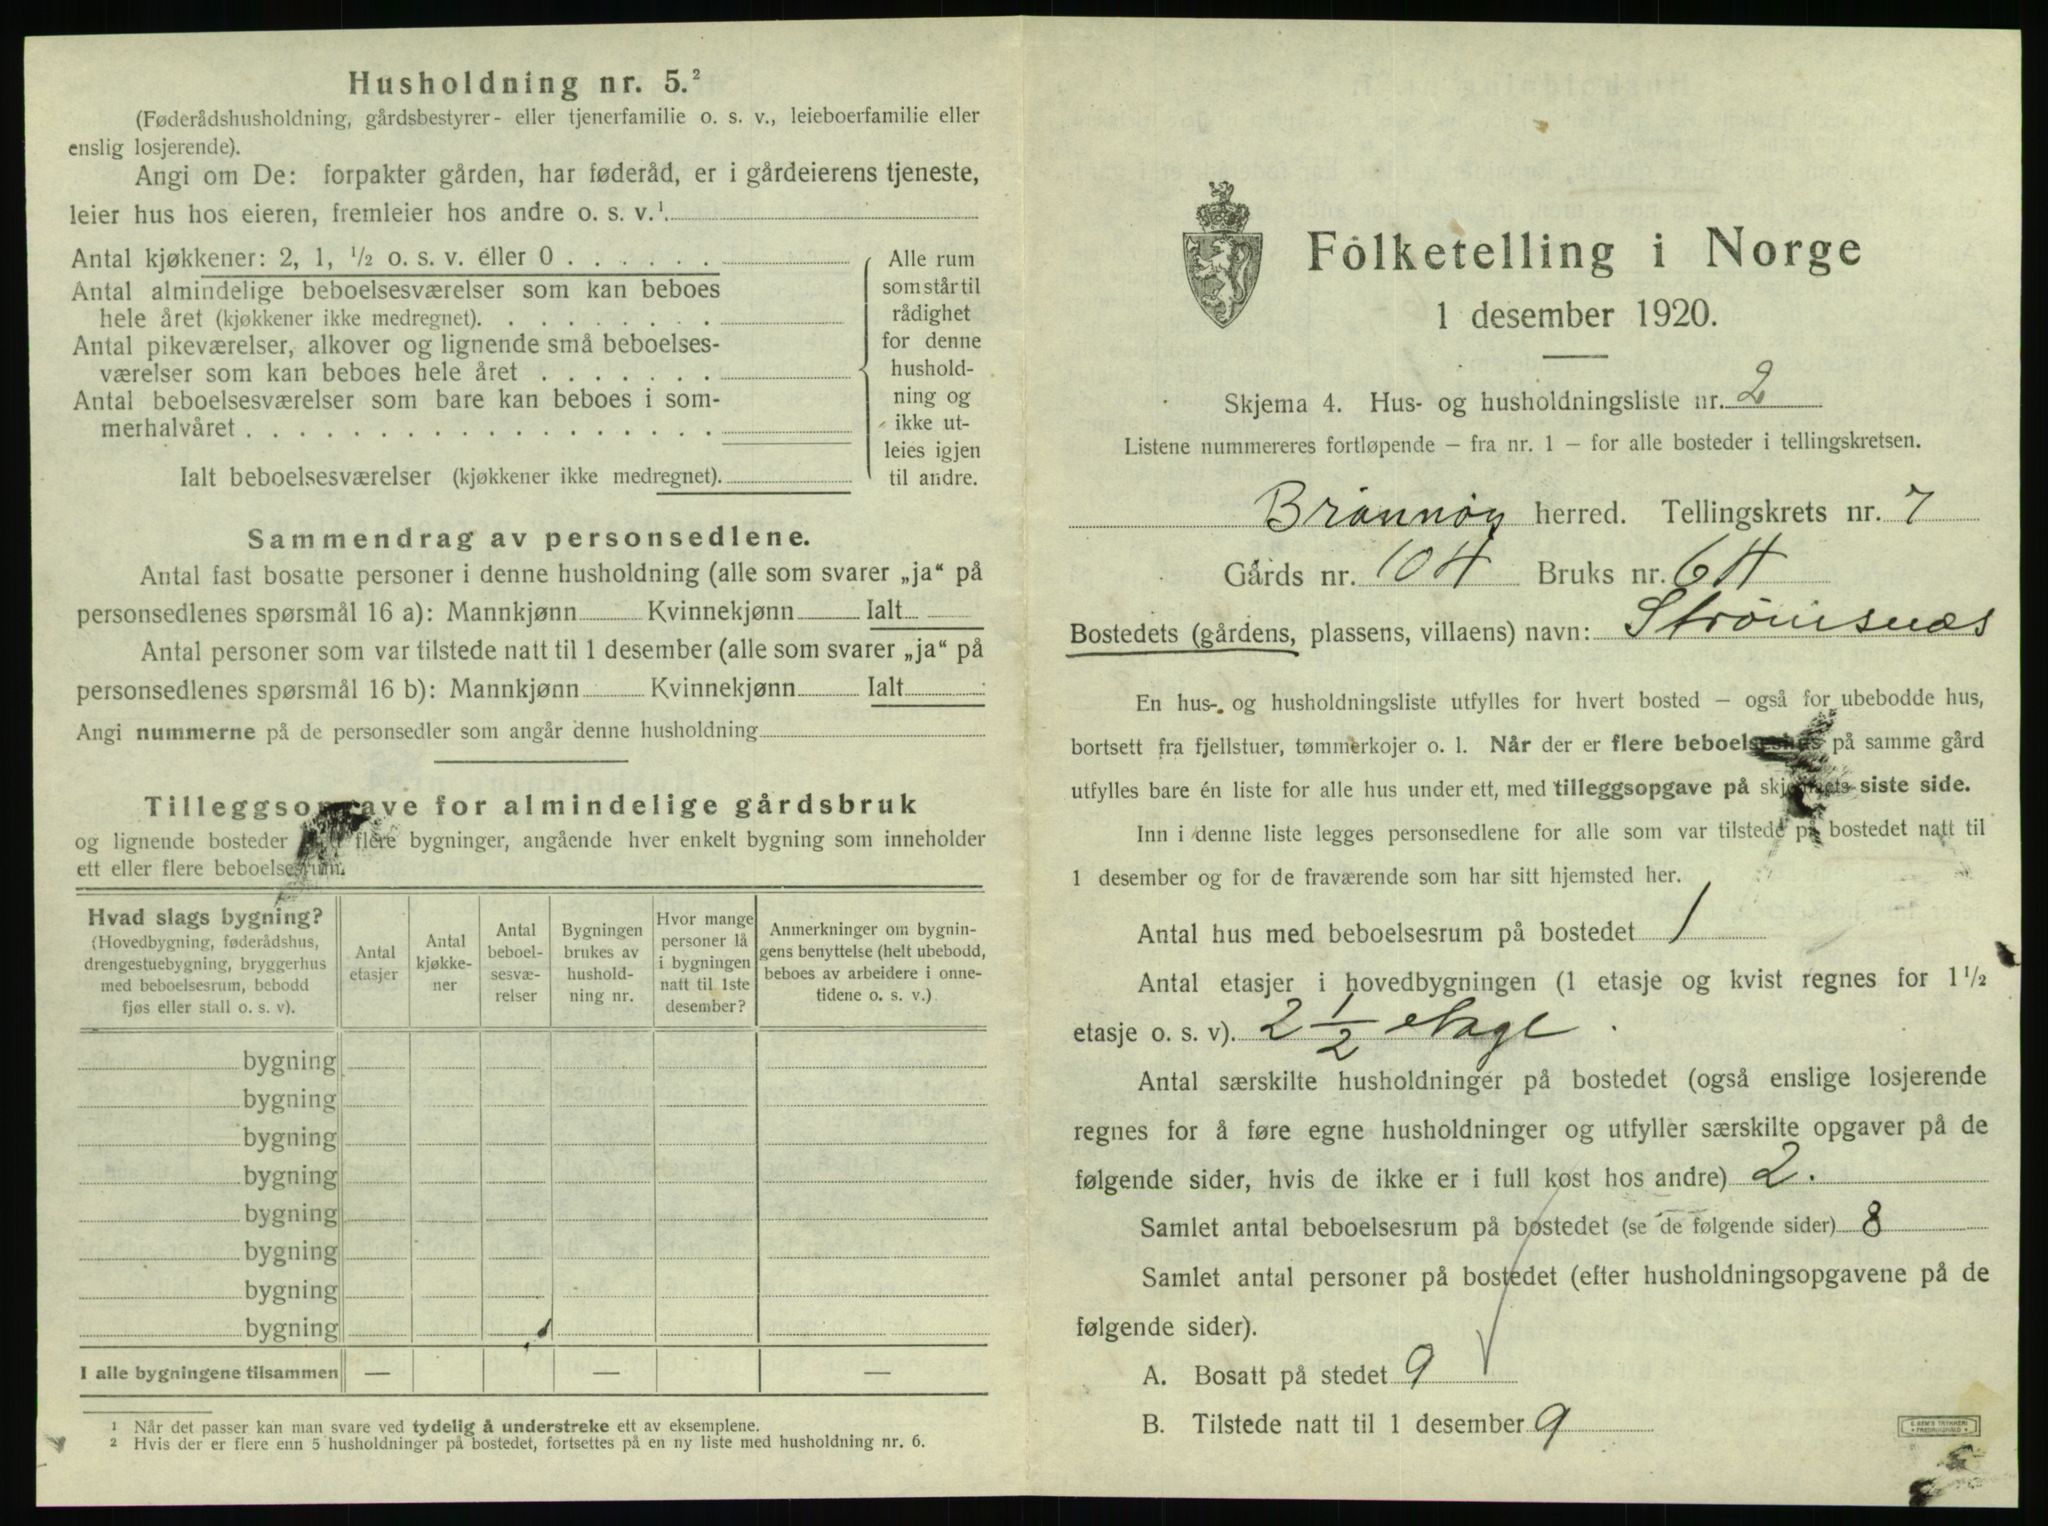 Husholdning nr. 5.²
(Føderådshusholdning, gårdsbestyrer- eller tjenerfamilie o. s. v., leieboerfamilie eller
enslig losjerende).
Angi om De: forpakter gården, har føderåd, er i gårdeierens tjeneste,
leier hus hos eieren, fremleier hos andre o. s. v.¹
Antal kjøkkener: 2, 1, ½ o. s. v. eller 0 . . . . . .
Antal almindelige beboelsesværelser som kan beboes
hele året (kjøkkener ikke medregnet). . . . . . . . .
Antal pikeværelser, alkover og lignende små beboelses-
værelser som kan beboes hele året . . . . . . .
Antal beboelsesværelser som bare kan beboes i som-
merhalvåret . . . . . . . . . . . . . . . . . .
Ialt beboelsesværelser (kjøkkener ikke medregnet).
Alle rum
som står til
rådighet
for denne
hushold-
ning og
ikke ut-
leies igjen
til andre.
Sammendrag av personsedlene.
Antal fast bosatte personer i denne husholdning (alle som svarer „ja“ på
personsedlenes spørsmål 16 a): Mannkjønn Kvinnekjønn Ialt
Antal personer som var tilstede natt til 1 desember (alle som svarer „ja“ på
personsedlenes spørsmål 16 b): Mannkjønn Kvinnekjønn Ialt
Angi nummerne på de personsedler som angår denne husholdning
Tilleggsopgave for almindelige gårdsbruk
og lignende bosteder flere bygninger, angående hver enkelt bygning som inneholder
ett eller flere beboelsesrum.
Hvad slags bygning?
(Hovedbygning, føderådshus,
drengestuebygning, bryggerhus
med beboelsesrum, bebodd
fjøs eller stall o. s. v).
Antal
etasjer
Antal
kjøkke-
ner
Antal
beboel-
sesvæ-
relser
Bygningen
brukes av
hushold-
ning nr.
Hvor mange
personer lå
i bygningen
natt til 1ste
desember?
Anmerkninger om bygnin-
gens benyttelse (helt ubebodd,
beboes av arbeidere i onne-
tidene o. s. v.)
bygning
bygning
bygning
bygning
bygning
bygning
bygning
bygning
I alle bygningene tilsammen — — —
¹ Når det passer kan man svare ved tydelig å understreke ett av eksemplene.
² Hvis der er flere enn 5 husholdninger på bostedet, fortsettes på en ny liste med husholdning nr. 6.
Folketelling i Norge
1 desember 1920.
Skjema 4. Hus- og husholdningsliste nr. 2
Listene nummereres fortløpende – fra nr. 1 – for alle bosteder i tellingskretsen.
Brønnøy herred. Tellingskrets nr. 7
Gårds nr. 104 Bruks nr. 64
Bostedets (gårdens, plassens, villaens) navn: Strømsnæs
En hus- og husholdningsliste utfylles for hvert bosted – også for ubebodde hus,
bortsett fra fjellstuer, tømmerkojer o. l. Når der er flere beboelseshus på samme gård
utfylles bare én liste for alle hus under ett, med tilleggsopgave på skjemaets siste side.
Inn i denne liste legges personsedlene for alle som var tilstede på bostedet natt til
1 desember og for de fraværende som har sitt hjemsted her.
Antal hus med beboelsesrum på bostedet 1
Antal etasjer i hovedbygningen (1 etasje og kvist regnes for 1½
etasje o. s. v). 2 ½ etage
Antal særskilte husholdninger på bostedet (også enslige losjerende
regnes for å føre egne husholdninger og utfyller særskilte opgaver på de
følgende sider, hvis de ikke er i full kost hos andre) 2.
Samlet antal beboelsesrum på bostedet (se de følgende sider) 8
Samlet antal personer på bostedet (efter husholdningsopgavene på de
følgende sider).
A. Bosatt på stedet 9
B. Tilstede natt til 1 desember 9
E. SEM'S TRYKKERI
FREDRIKSHALD